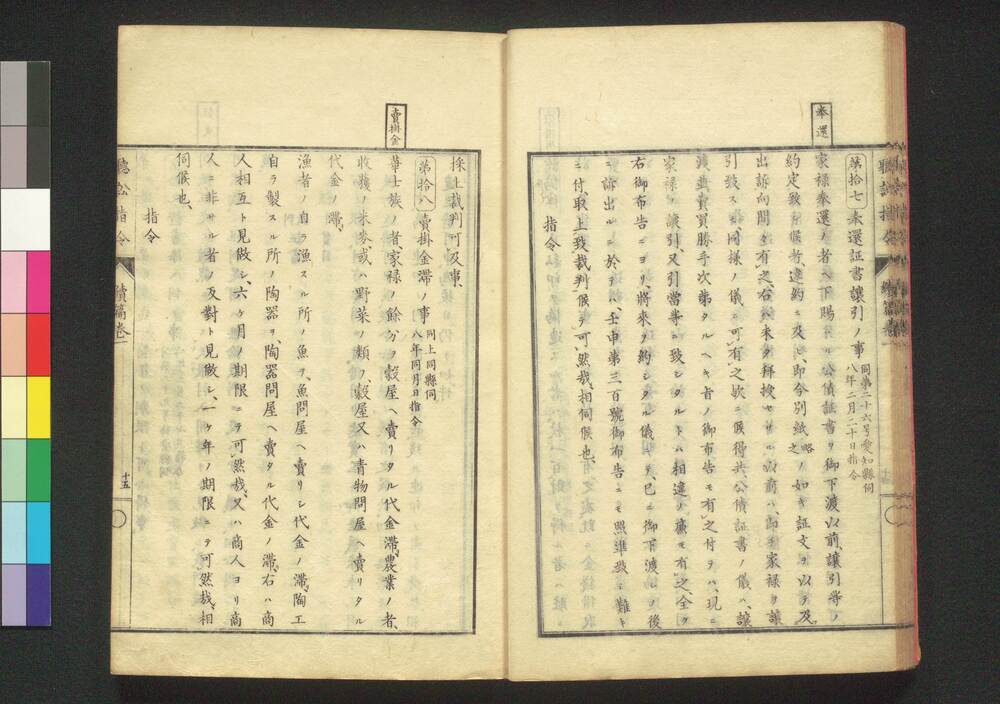 奉還
第拾七 奉還証書讓引ノ事 同第二十六号愛知縣伺
八年二月二十日指令
家禄奉還ノ者ヘ下賜ル公債証書ヲ御下渡以前、讓引等ノ
約定致シ候者、違約ニ及ヒ、即今別紙略之ノ如キ証文ヲ以テ及
出訴向間々有之、右ハ未タ拜授セサル以前ハ、即チ家禄ヲ讓
引致スモ、同様ノ儀ニ可有之欤ニ候得共、公債証書ノ儀ハ、讓
渡並賣買勝手次第タルヘキ旨ノ御布告モ有之付テハ、現ニ
家禄ノ讓引、又引當等ニ致シタルトハ相違ノ廉モ有之、全ク
右御布告ニヨリ、將來ヲ約シタルノ儀ニ、已ニ御下渡シノ後
ニ訴出ルニ於テハ、壬申第三百號御布告ニモ照準致シ難キ
ニ付、取上致裁判候テ可然哉、相伺候也、
指令
聽訟指令 續篇卷一 十五
賣掛金
採上裁判可及事、
第拾八 賣掛金滯ノ事 同上同縣伺
八年同月日指令
華士族ノ者、家禄ノ餘分ヲ穀屋ヘ賣リタル代金滯、農業ノ者、
收穫ノ米麥、或ハ野菜ノ類ヲ、穀屋又ハ青物問屋ヘ賣リタル
代金ノ滯、
漁者ノ自ラ漁スル所ノ魚ヲ、魚問屋ヘ賣リシ代金ノ滯、陶工
自ラ製スル所ノ陶器ヲ、陶器問屋ヘ賣タル代金ノ滯、右ハ商
人相互ト見做シ、六ヶ月ノ期限ニテ可然哉、又ハ商人ヨリ商
人ニ非サル者ノ反對ト見做シ、一ヶ年ノ期限ニテ可然哉、相
伺候也、
指令
聽訟指令 續篇卷一